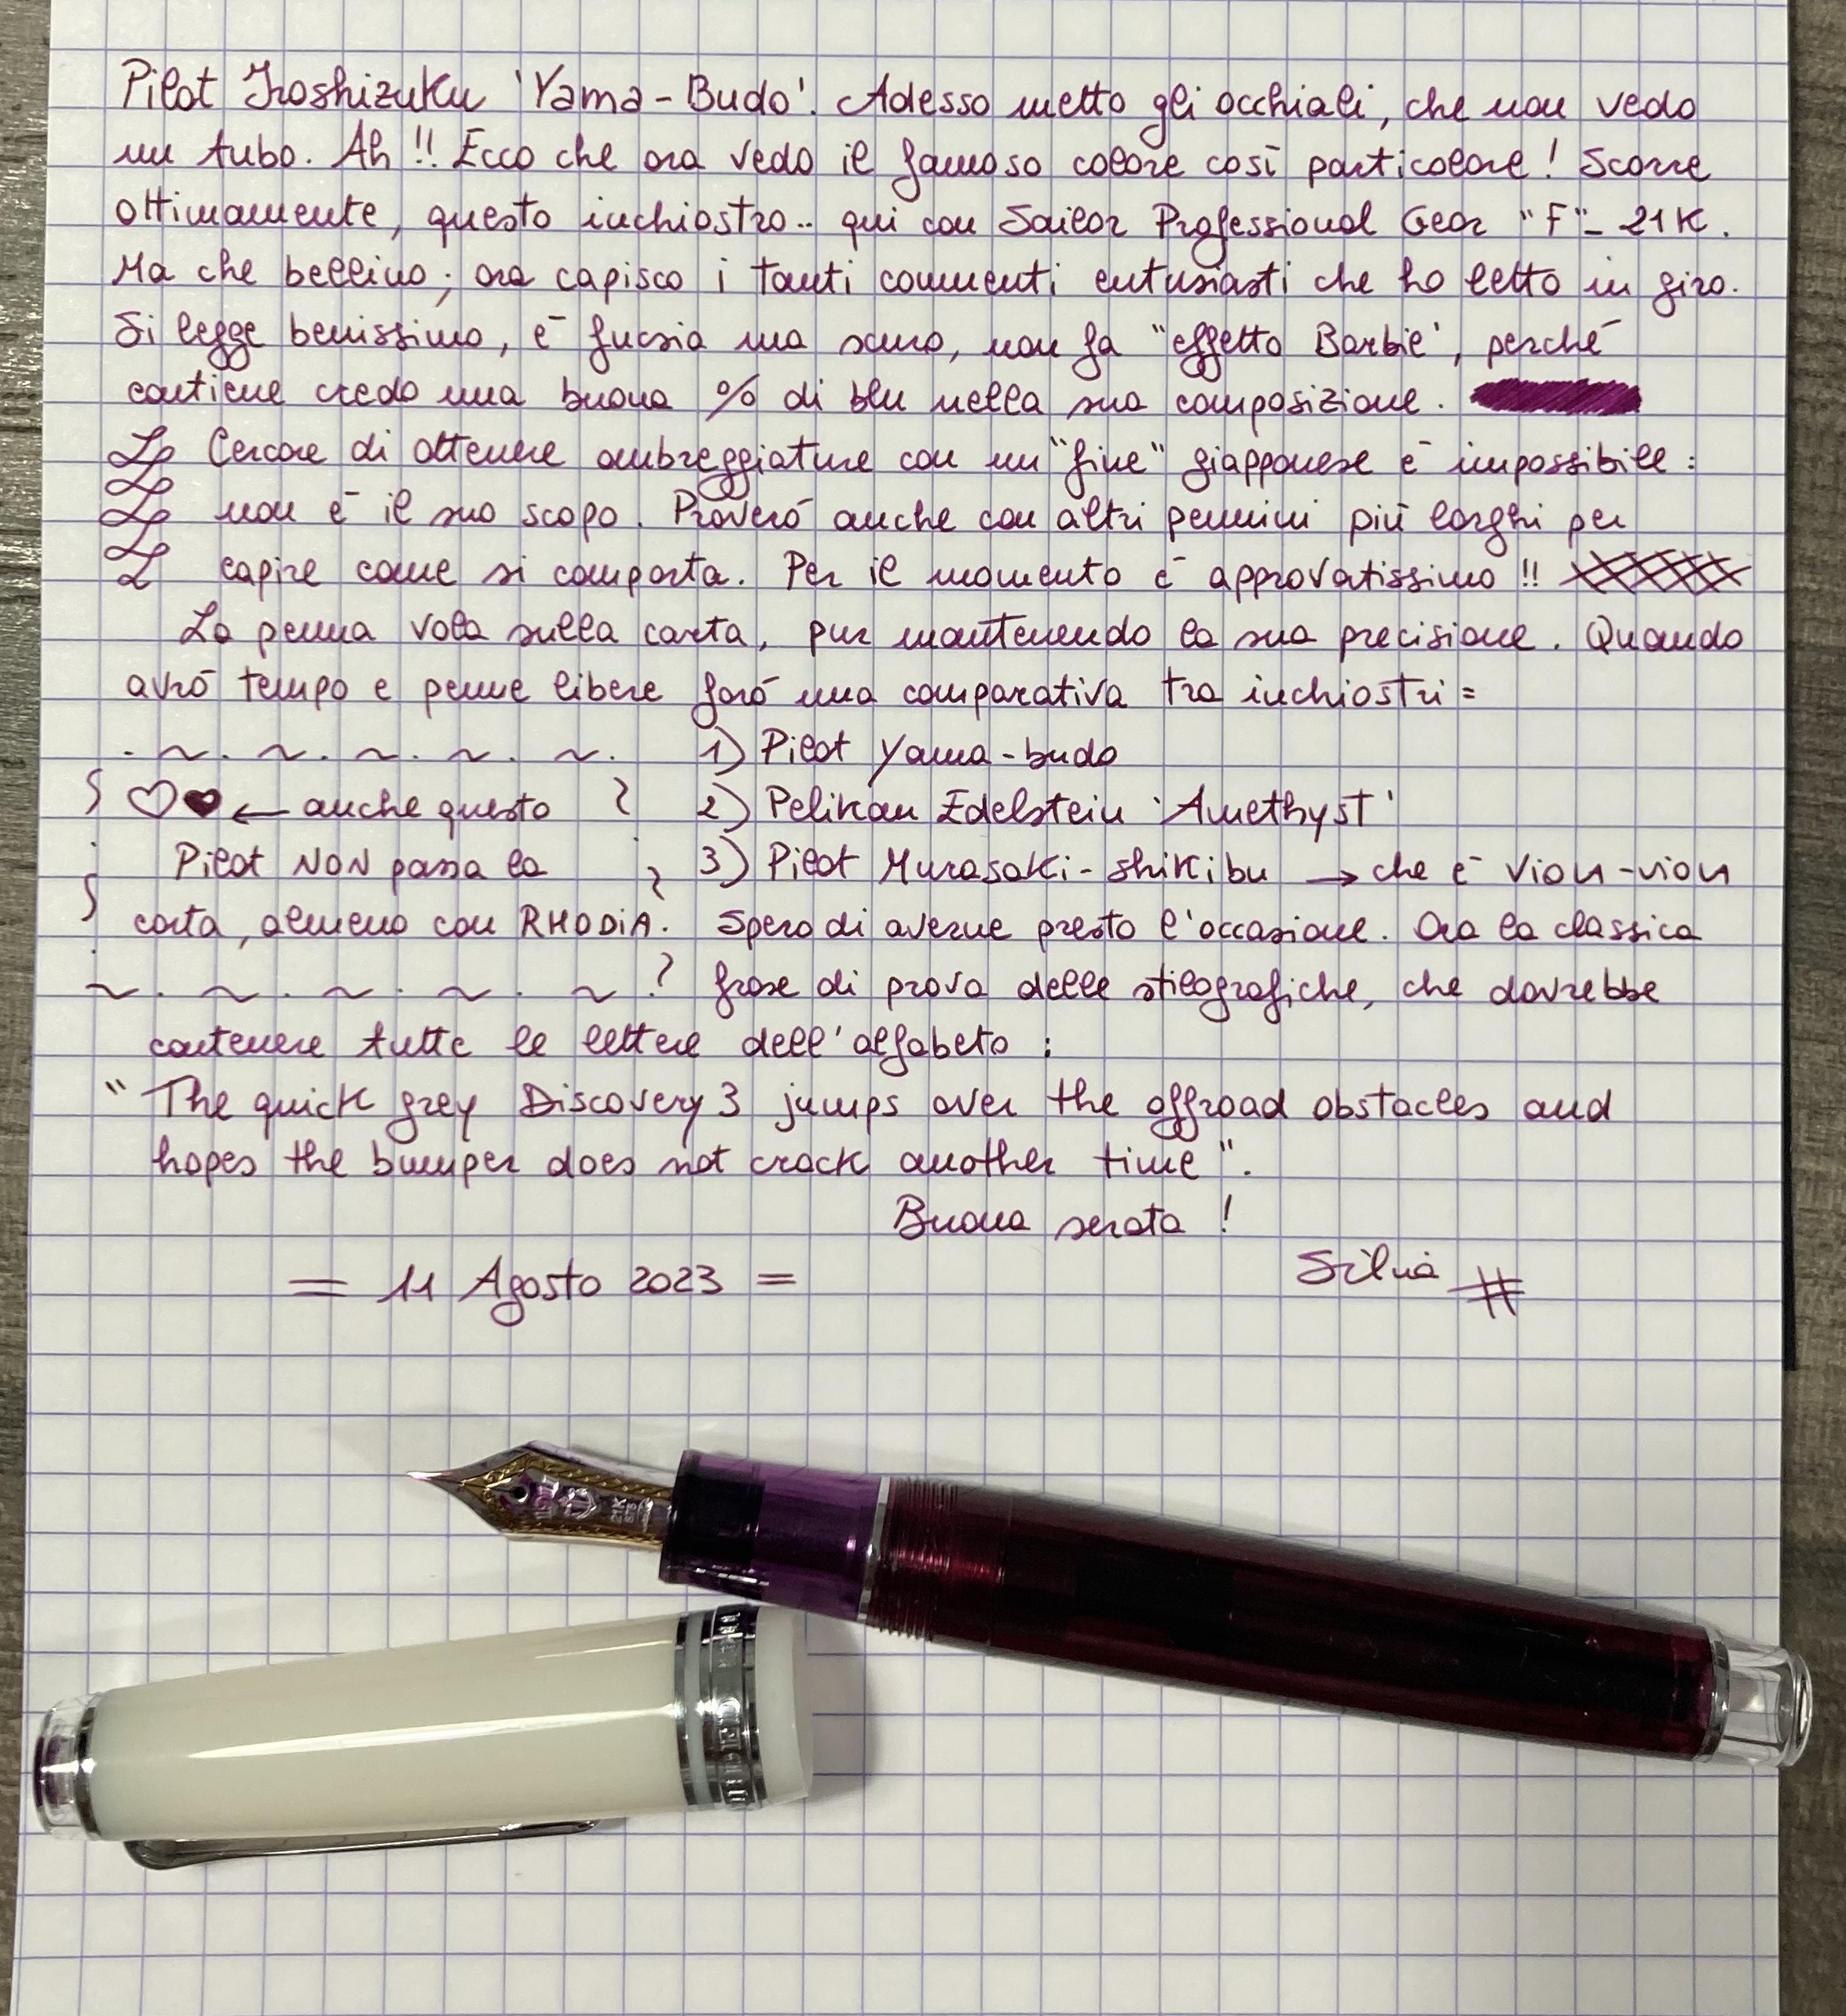 Pilot Iroshizuku 'Yama-Budo'. Adesso metto gli occhiali, che non vedo
un tubo. Ah!! Ecco che ora vedo il famoso colore così particolare! Scorre
ottimamente, questo inchiostro.. qui con Sailor Professional Gear "F"- 21K.
Ma che bellino; ora capisco i tanti commenti entusiasti che ho letto in giro.
Si legge benissimo, è fucsia ma scuro, non fa "effetto Barbie', perché
contiene credo una buona % di blu nella sua composizione.
Cercare di ottenere ombreggiature con un "fine" giapponese è impossibile:
non è il suo scopo. Proverò anche con altri pennini più larghi per
capire come si comporta. Per il momento è approvatissimo!!
La penna vola sulla carta, pur mantenendo la sua precisione. Quando
avrò tempo e penne libere farò una comparativa tra inchiostri=
1) Pilot Yama-budo
2) Pelikan Edelstein 'Amethyst'
3) Pilot Murasaki-shikibu → che è vion-vion
♡♥ ← anche questo
Pilot NON passa la
carta, almeno con RHODiA.
Spero di averne presto l'occasione. Ora la classica
frase di prova delle stilografiche, che dovrebbe
contenere tutte le lettere dell'alfabeto:
"The quick grey Discovery 3 jumps over the offroad obstacles and
hopes the bumper does not crack another time".
Buona serata!
= 11 Agosto 2023 =
Silvia #
21K
875